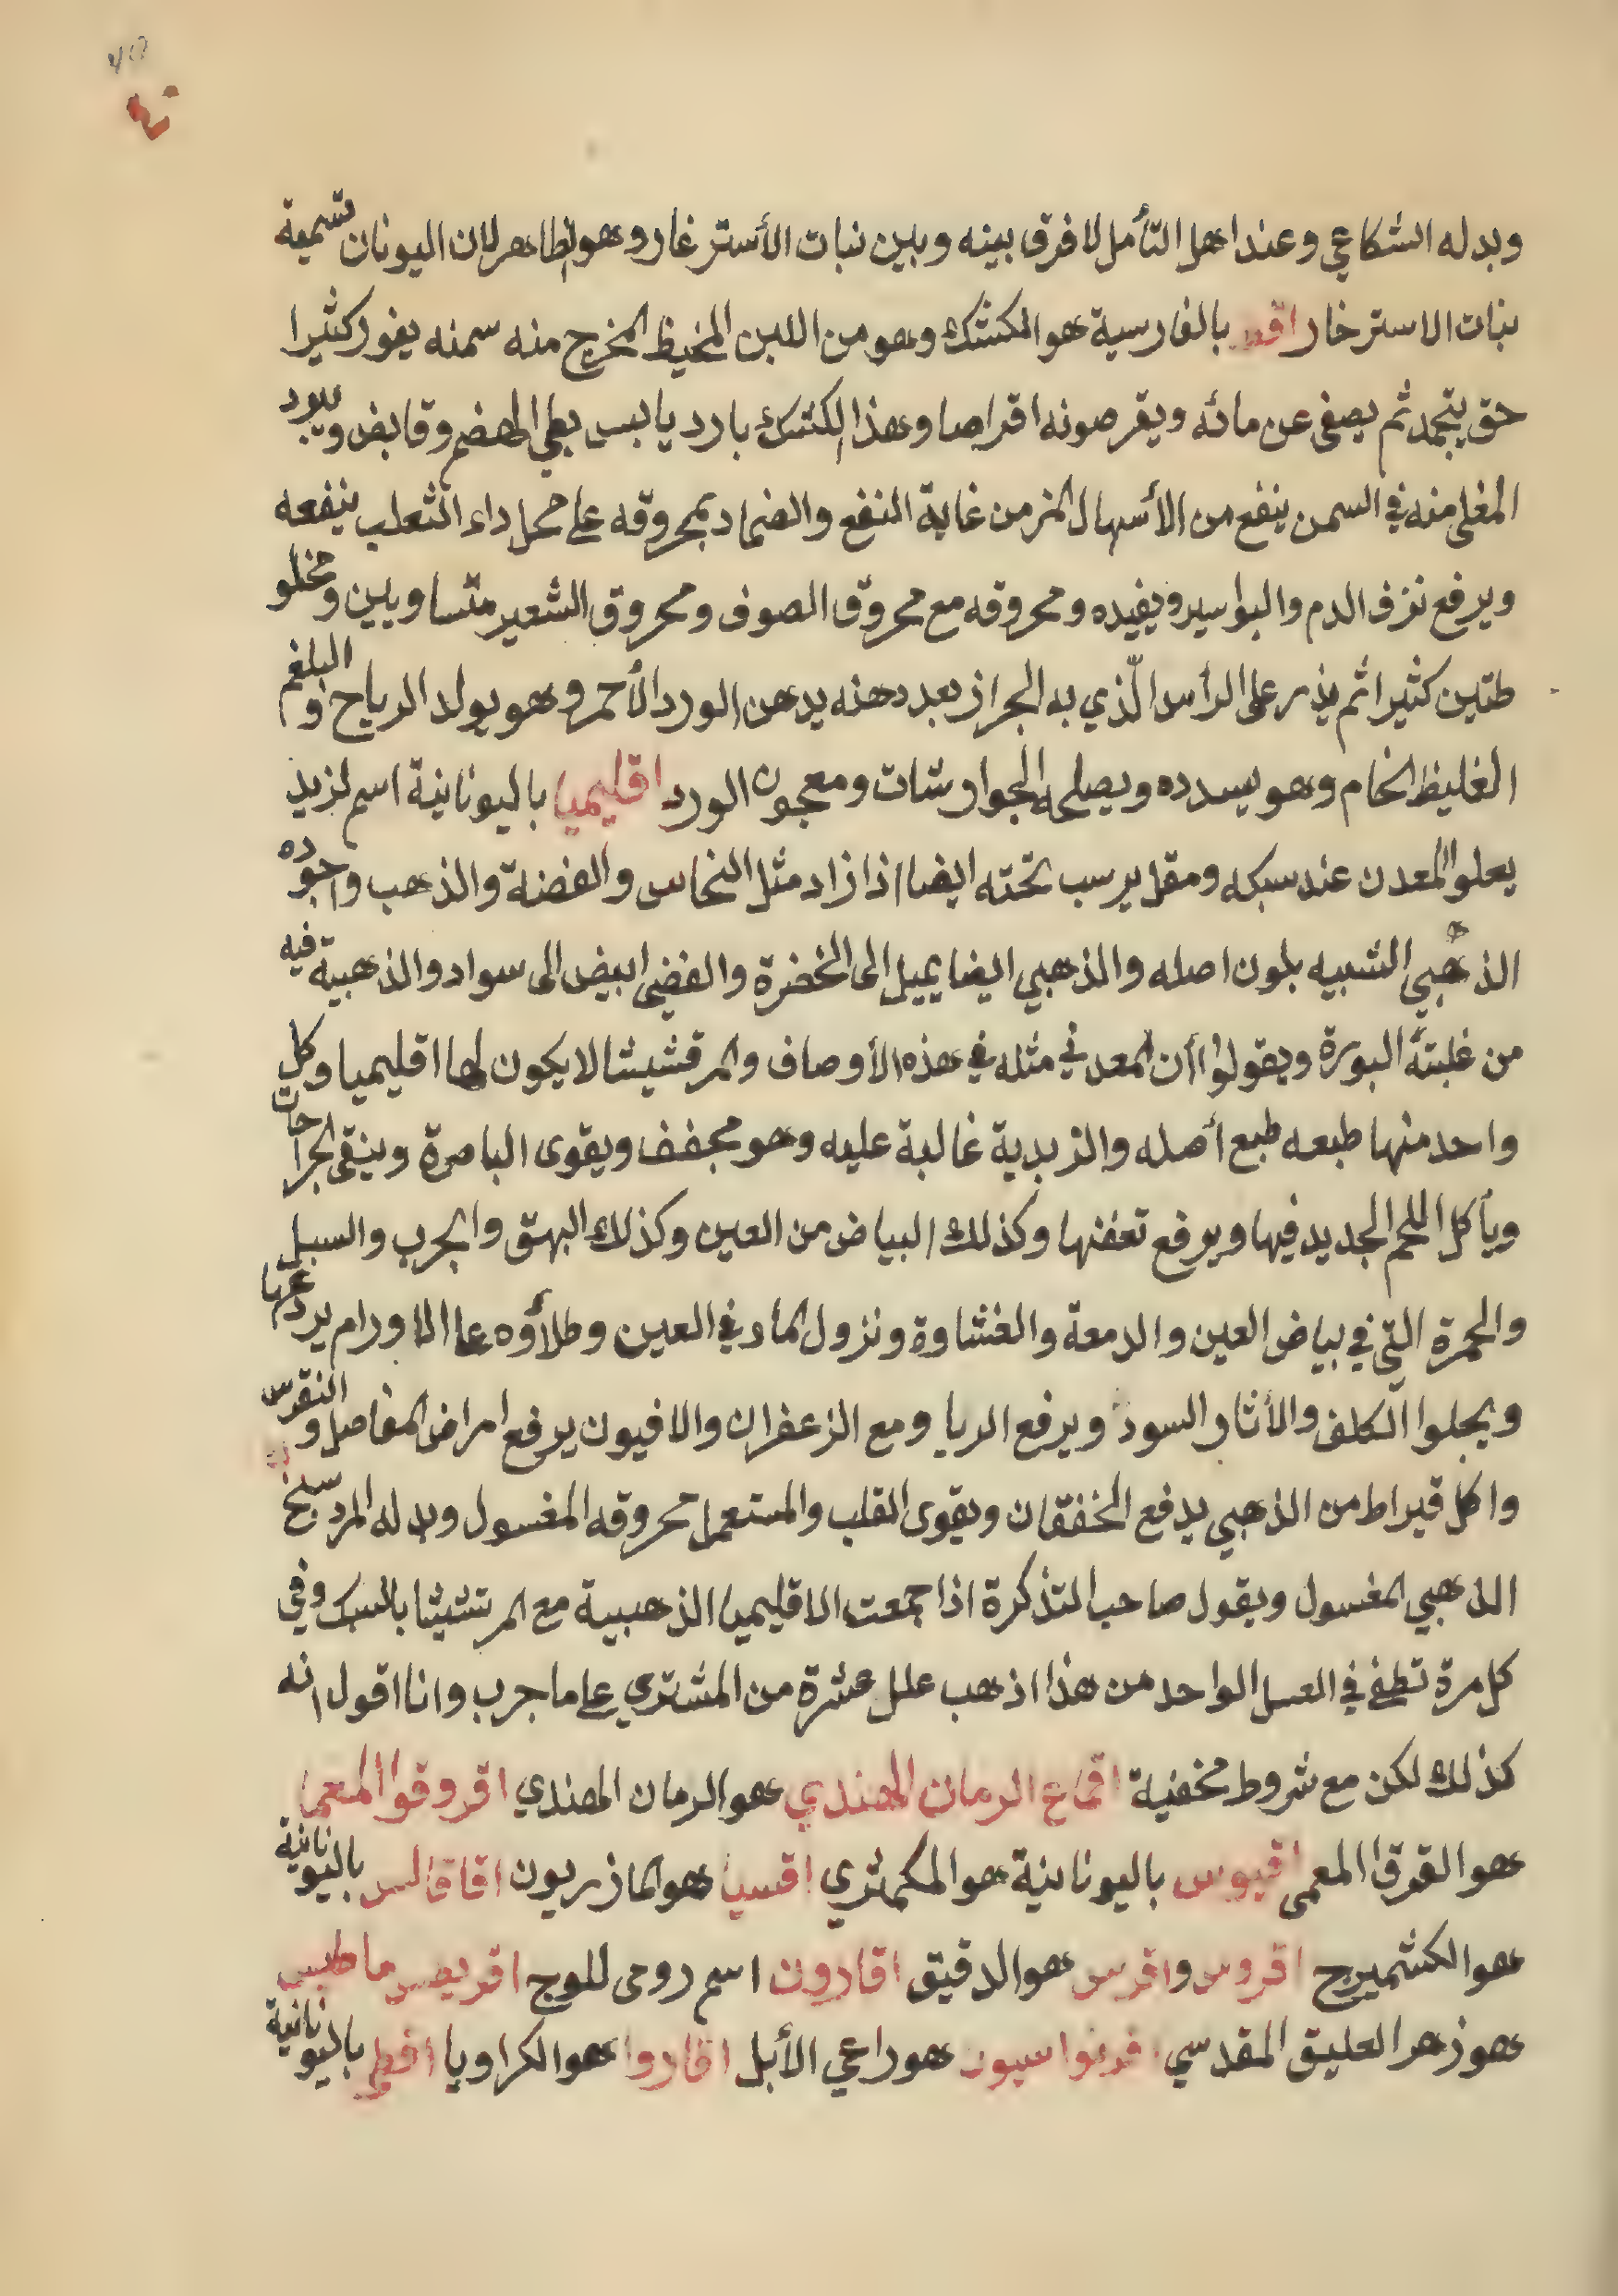 وبدله الشكاعي وعند اهل التأمل لا فرق بينه وبين نبات الأسترغار وهو الظاهر لان اليونان تسمية
بنات الاسترخار اقط بالفارسية هو الكشك وهو من اللبن المخيظ المخرج منه سمنه يفور كثيرا
حتى يتجمد ثم يصفى عن مائه ويقرصونه اقراصا وهذا الكشك بارد يابس بطي الهضم وقابض ويبرد
المغلي منه في السمن ينفع من الأسهال المزمن غاية النفع والضماد بمحروقه على محل داء الثعلب ينفعه
ويرفع نزف الدم والبواسير ويفيده ومحروقه مع محروق الصوف ومحروق الشعير متساويين ومخلو
طتين كثيرا ثم يذر على الرأس الّذي به الجراز بعد دهنه بدهن الورد الأحمر وهو يولد الرياح والبلغم
الغليظ الخام وهو يسدده ويصلحه الجوارشات ومعجون الورد اقليميا باليونانية اسم لزبد
يعلو المعدن عند سبكه ومقل يرسب تحته ايضا اذا زاد مثل النحاس والفضة والذهب واجوده
الذهبي الشبيه بلون اصله والذهبي ايضا يميل الى الخضرة والفضي ابيض الى سواد والذهبية فيه
من غلبتة البورة ويقولوا أن المعدني مثله في هذه الأوصاف والمرقشيشا لا يكون لها اقليميا وكل
واحد منها طبعه طبع أصله والزبدية غالبة عليه وهو مجفف ويقوى الباصرة وينقى الجراحات
ويأكل اللحم الجديد فيها ويرفع تعفنها وكذلك البياض من العين وكذلك البهق والجرب والسبل
والحمرة التي في بياض العين والدمعة والغشاوة ونزول الماء في العين وطلأوه على الاورام يردعها
ويجلوا الكلف والأثار السود ويرفع الربا ومع الزعفران والافيون يرفع امراض المفاصل والنقرس
واكل قيراط من الذهبي يدفع الخفقان ويقوى القلب والمستعمل محروقه المغسول وبدله المردسنج
الذهبي المغسول ويقول صاحب التذكرة اذا جمعت الاقليميا الذهبية مع المرتشيثا بالسبك وفي
كل مرة تطفى في العسل الواحد من هذا اذهب علل عشرة من المشتري على ما جرب وانا اقول انه
كذلك لكن مع شروط مخفية اقماع الرمان الهندي هو الرمان الهندي اقروقوا المعما
هو القرقوا المعمى اقيوس باليونانية هو الكمثري اقسيا هو المازريون اقاقالس باليونانية
هو الكشميرج اقروس واقرس هو الدقيق اقارون اسم رومى للوج اقريطس ماطيس
هو زهر العليق المقدسي اقربواسيون هو راعي الأبل اقاروا هو الكراويا اقطى باليونانية